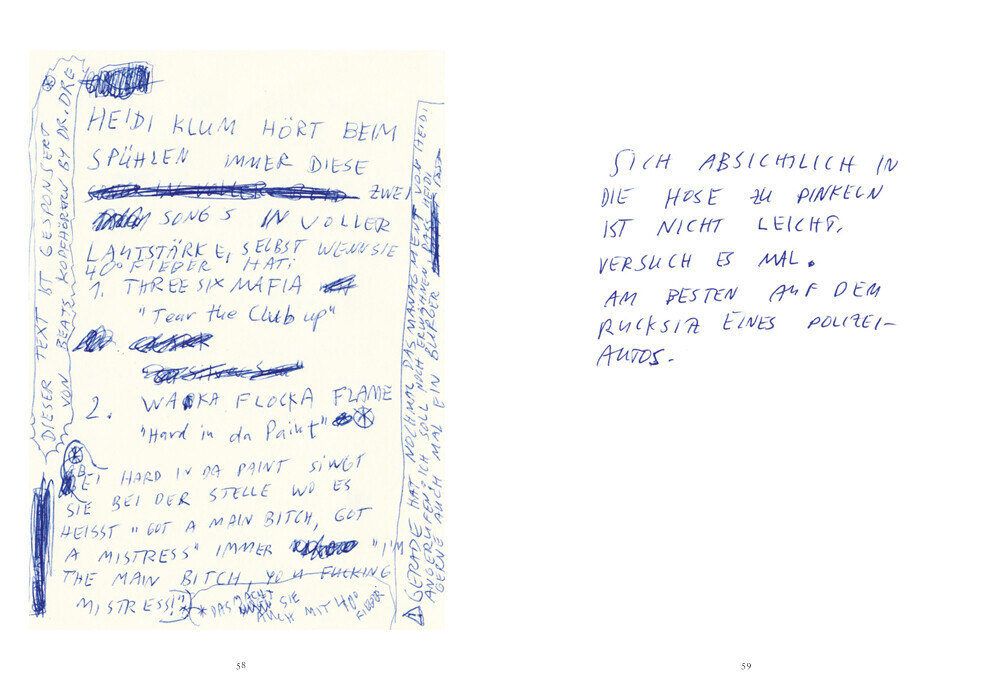 HEIDI KLUM HÖRT BEIM
SPÜHLEN IMMER DIESE
ZWEI
SONGS IN VOLLER
LAUTSTÄRKE, SELBST WENN SIE
40° FIEBER HAT:
1. THREE SIX MAFIA
"Tear the Club up"
2. WAKA FLOCKA FLAME
"Hard in da Paint" *
* BEI HARD IN DA PAINT SINGT
SIE BEI DER STELLE WO ES
HEISST "GOT A MAIN BITCH, GOT
A MISTRESS" IMMER "I'M
THE MAIN BITCH, YOU FUCKING
MISTRESS!" *
* DAS MACHT
SIE
AUCH MIT 40°
FIEBER
* DIESER TEXT IST GESPONSERT
VON BEATS KOPFHÖRERN BY DR. DRE
GERADE HAT NOCHMAL DAS MANAGMENT VON HEIDI
ANGERUFEN, ICH SOLL NOCH ERWÄHNEN DASS HEIDI
GERNE AUCH MAL EIN BURGER ISST
58
SICH ABSICHTLICH IN
DIE HOSE ZU PINKELN
IST NICHT LEICHT.
VERSUCH ES MAL.
AM BESTEN AUF DEM
RÜCKSITZ EINES POLIZEI-
AUTOS.
59